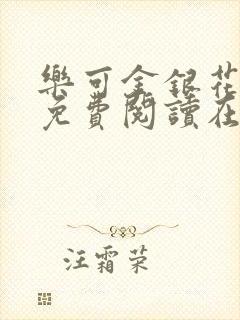 樂可金銀花
免費閱讀在
汪霜荣